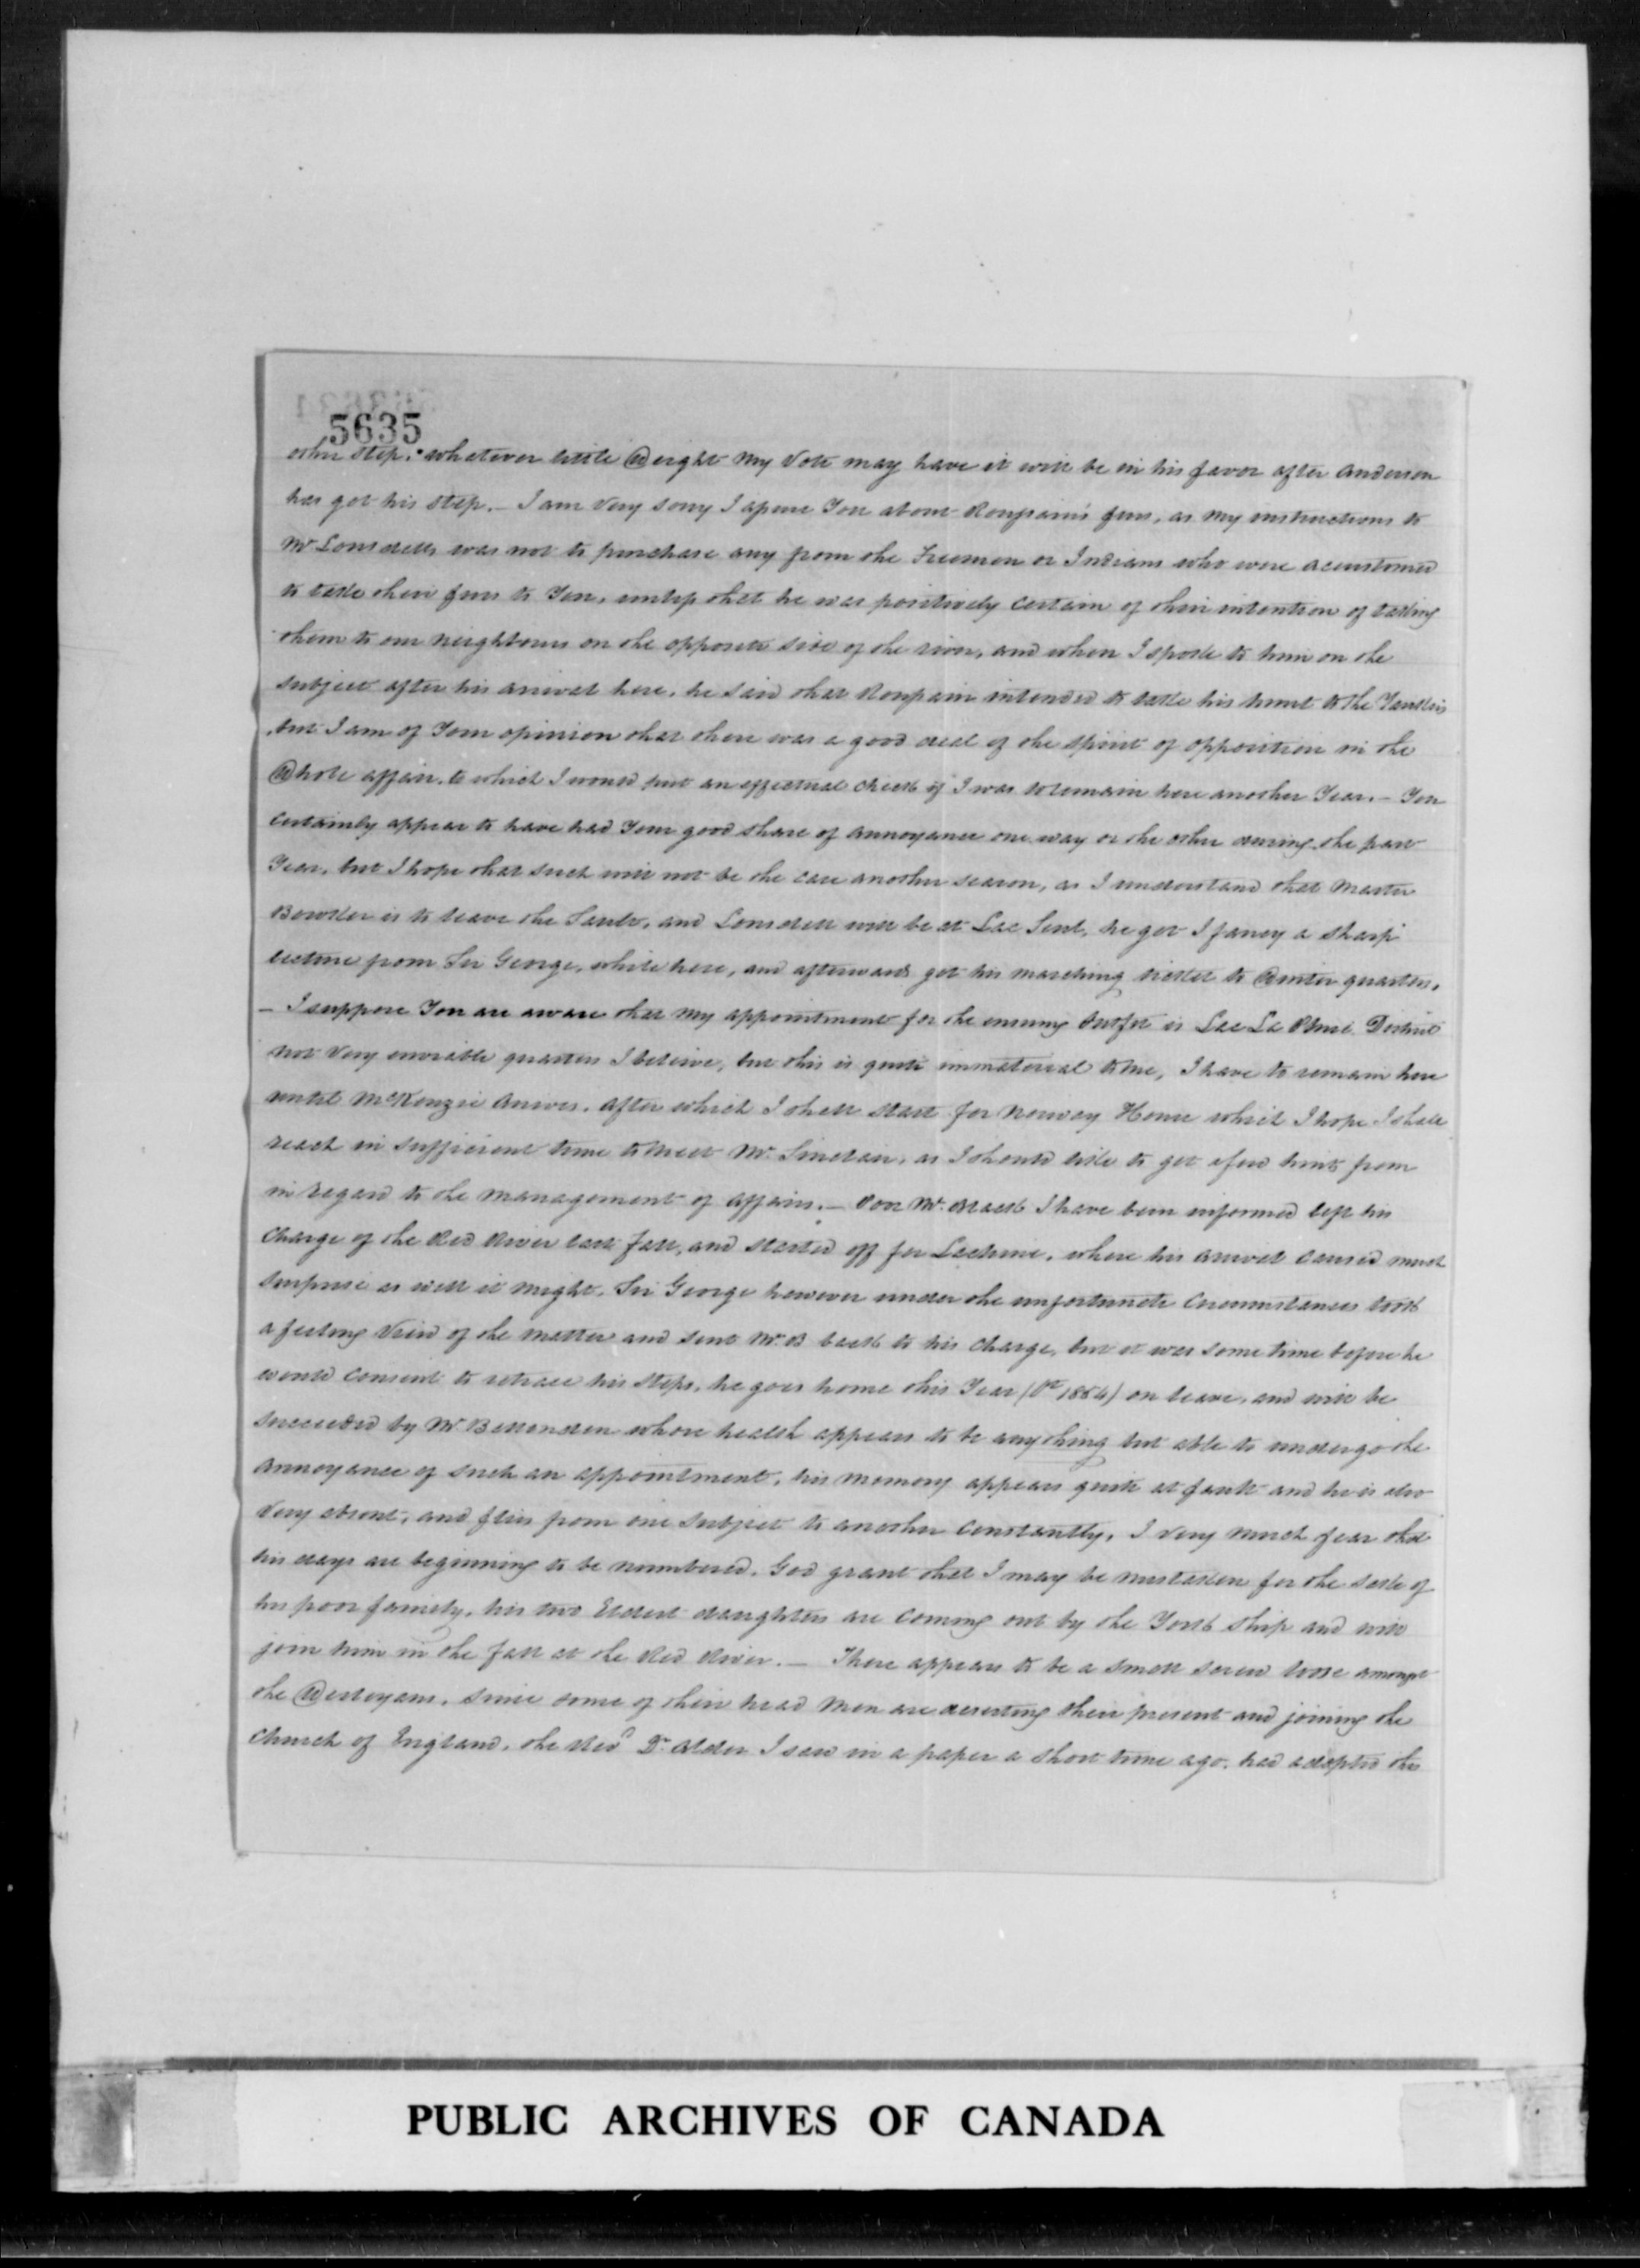 5635
other step. whatever little Weight My Vote may have it will be in his favor after Anderson
has got his step. – I am Very sorry I assure You about furs, as My instructions to
Mr Lonsdells was not to purchase any from the Freemen or Indians who were acustomed
to take their furs to You, unless that he was positively certain of their intention of taking
them to our neighbours on the opposite side of the river, and when I spoke to him on the
subject after his arrival here, he said that intended to take his hunt to the Yankies
, but I am of Your opinion that there was a good deal of the spirit of opposition in the
Whole affair, to which I would put an effectual check if I was to remain here another Year. – You
Certainly appear to have had Your good share of Annoyance one way or the other during the past
Year, but I hope that such will not be the case another season, as I understand that Master
is to leave the Sault, and Lonsdell will be at Lac Seul, he got I fancy a sharp
lecture from Sir George, while here, and afterwards got his marching ticket to Winter quarters.
– I suppose You are aware that my appointment for the ensuing Outfit is Lac La Pluie District
not Very enviable quarters I beleive, but this is quite immaterial to me, I have to remain here
until McKenzie Arives, after which I shall start for Norway House which I hope I shall
reach in sufficient time to Meet Mr. Sinclair, as I should like to get a few hints from
in regard to the Management of Affairs. – Poor Mr. Black I have been informed left his
Charge of the Red River last fall, and started off for Lachine, where his arrivel caused much
surprise as well it Might. Sir George however under the unfortunate Circumstances took
a feeling View of the Matter and sent Mr. B back to his Charge, but it was some time before he
would Consent to retrace his Steps, he goes home this Year (Ot 1854) on leave, and will be
succeeded by Mr Bellenden whose health appears to be anything but able to undergo the
Annoyance of such an appointment, his Memory appears quite at fault and he is also
Very absent, and flies from one subject to another Constantly, I Very Much fear that
his days are beginning to be numbered. God grant that I may be mistaken for the sake of
his poor family, his two Eldest daughters are Coming out by the York Ship and will
join him in the fall at the Red River. – There appears to be a small screw loose amongst
the Wesleyans, since some of their head Men are deserting their present and joining the
Church of England, the Revd Dr. Alder I saw in a paper a short time ago, had adopted this
PUBLIC ARCHIVES OF CANADA